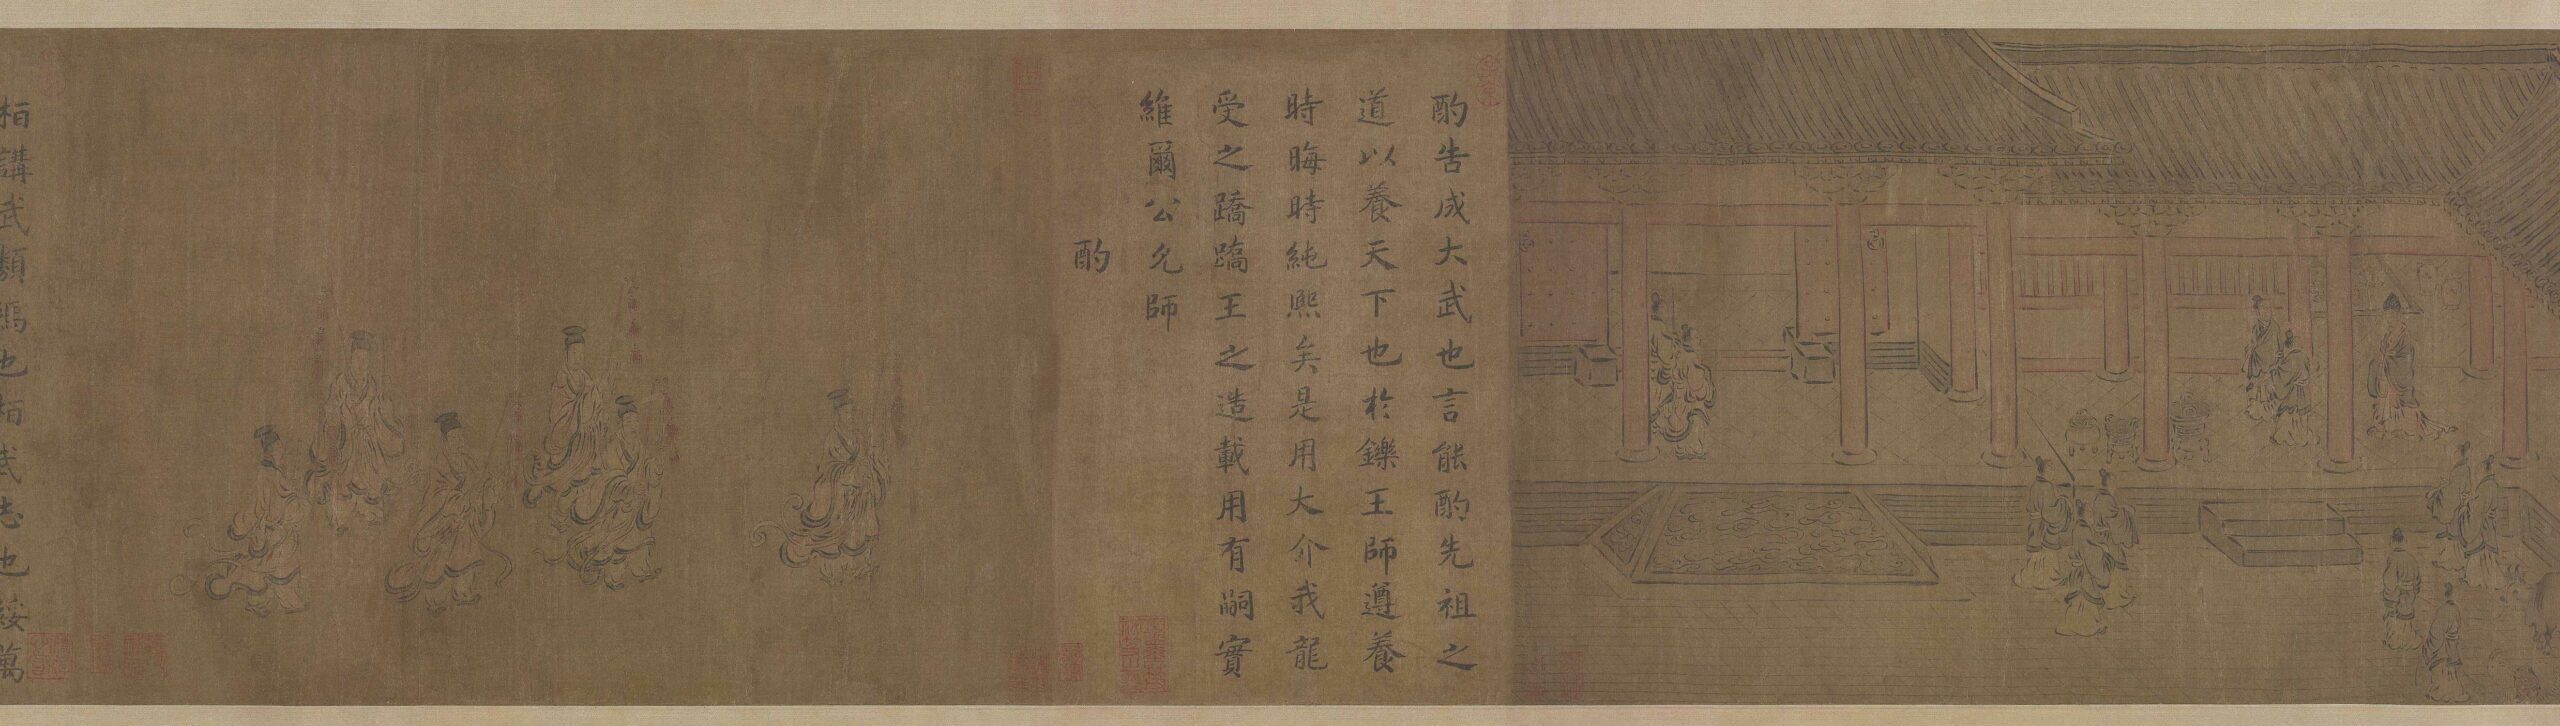 酌告成大武也言能酌先祖之
道以養天下也於鑠王師遵養
時晦時純熙矣是用大介我龍
受之蹻蹻王之造載用有嗣實
維爾公允師
酌
桓講武類禡也桓武志也綏萬